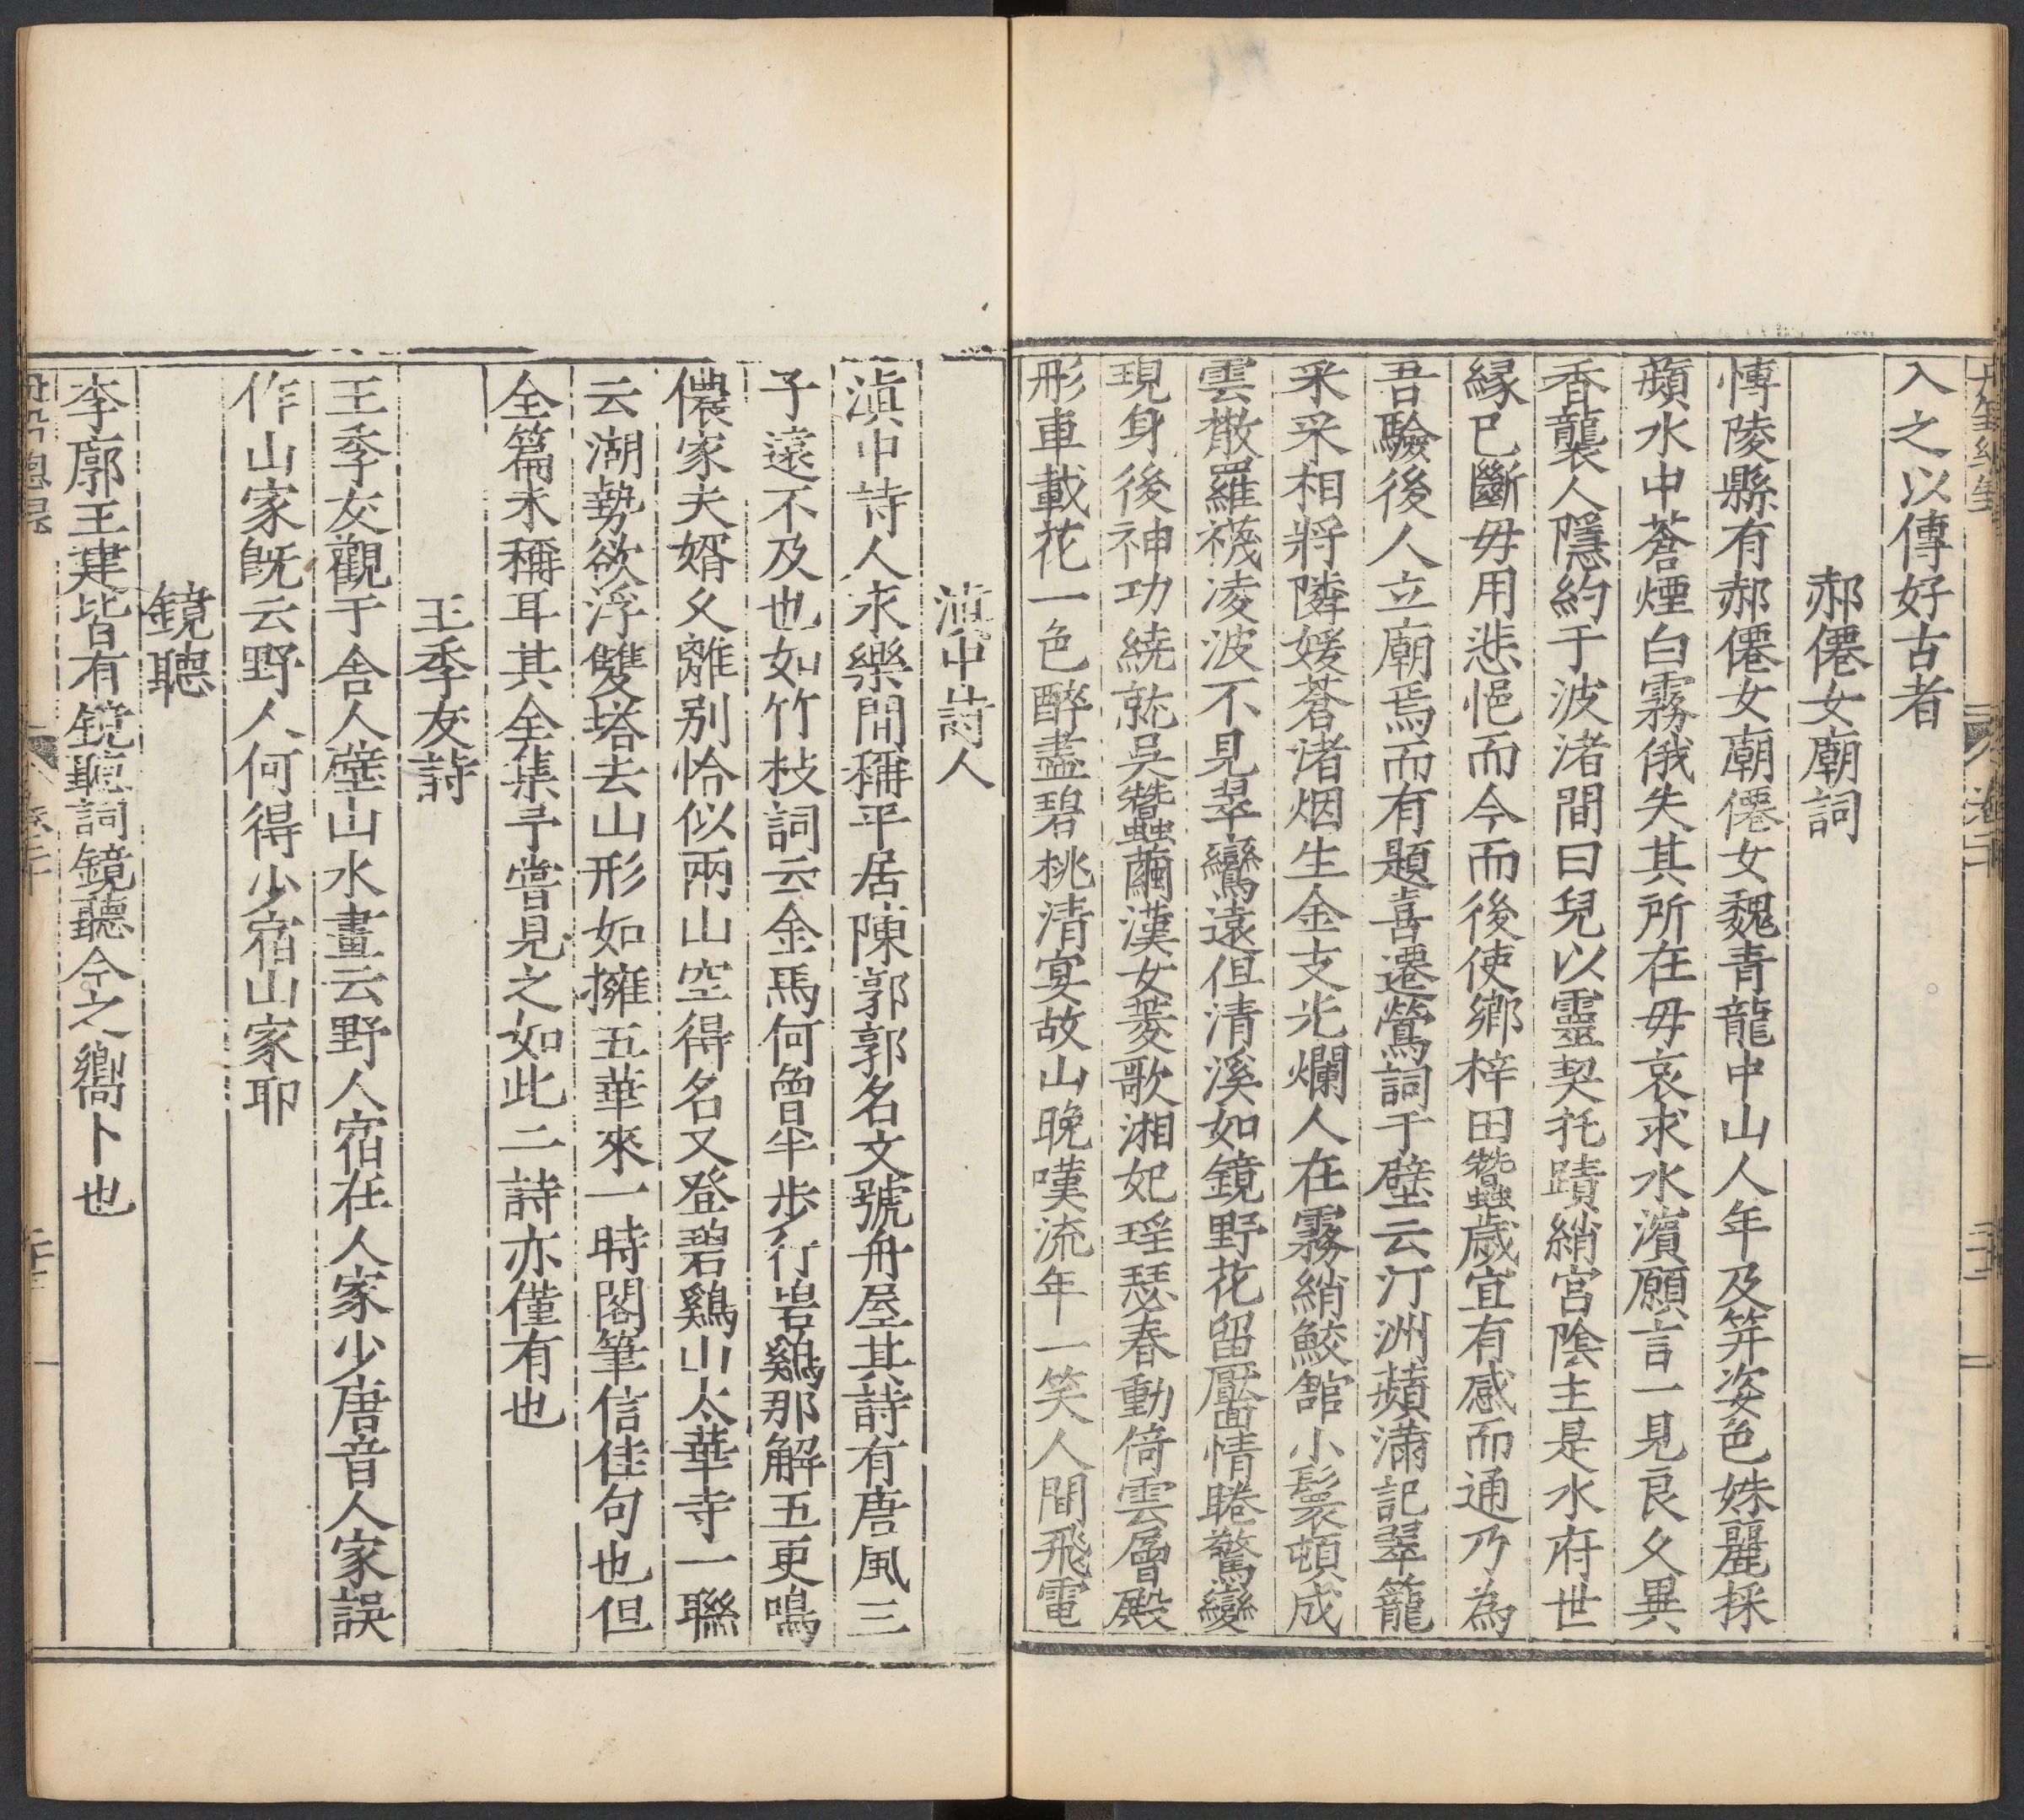 入之以傳好古者
郝僊女廟詞
慱陵縣有郝僊女廟僊女魏青龍中山人年及笄姿色姝麗採
蘋水中蒼煙白霧俄失其所在毋哀求水濵願言一見良乆異
香襲人隱約于波渚間曰兒以靈契托蹟綃宫陰主是水府世
縁已斷毋用悲悒而今而後使鄉梓田蠶歲宜有感而通乃為
吾驗後人立廟焉而有題喜遷鶯詞于壁云汀洲蘋滿記翠籠
采采相將隣媛蒼渚烟生金支光爛人在霧綃鮫舘小鬟頓成
雲散羅襪凌波不見翠鸞遠但清溪如鏡野花留靨情睠驚變
現身後神功繞就吳蠶繭漢女菱歌湘妃瑶瑟春動倚雲層殿
彤車載花一色醉盡碧桃清宴故山晚嘆流年一笑人間飛電
滇中詩人
滇中詩人永樂間稱平居陳郭郭名文號舟屋其詩有唐風三
子遠不及也如竹枝詞云金馬何曾半步行碧鷄那解五更鳴
儂家夫婿乆離别恰似兩山空得名又登碧鷄山太華寺一聯
云湖勢欲浮雙塔去山形如擁五華來一時閣筆信佳句也但
全篇未稱耳其全集予嘗見之如此二詩亦僅有也
王季友詩
王季友觀于舍人壁山水畫云野人宿在人家少唐音人家誤
作山家旣云野人何得少宿山家耶
鏡聽
李廓王建皆有鏡聽詞鏡聽今之嚮卜也